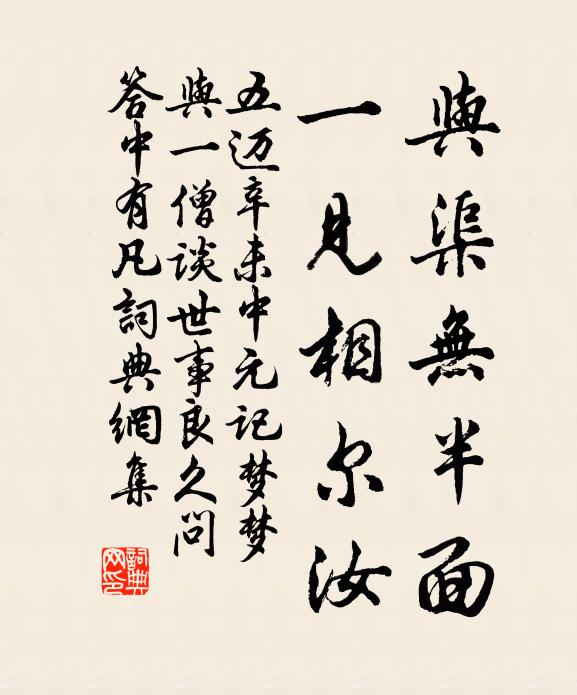 與渠無半面
一見相尔汝
五迈辛未中元记梦梦
與一僧谈世事良久問
答中有凡詞典網集
詞典
网印